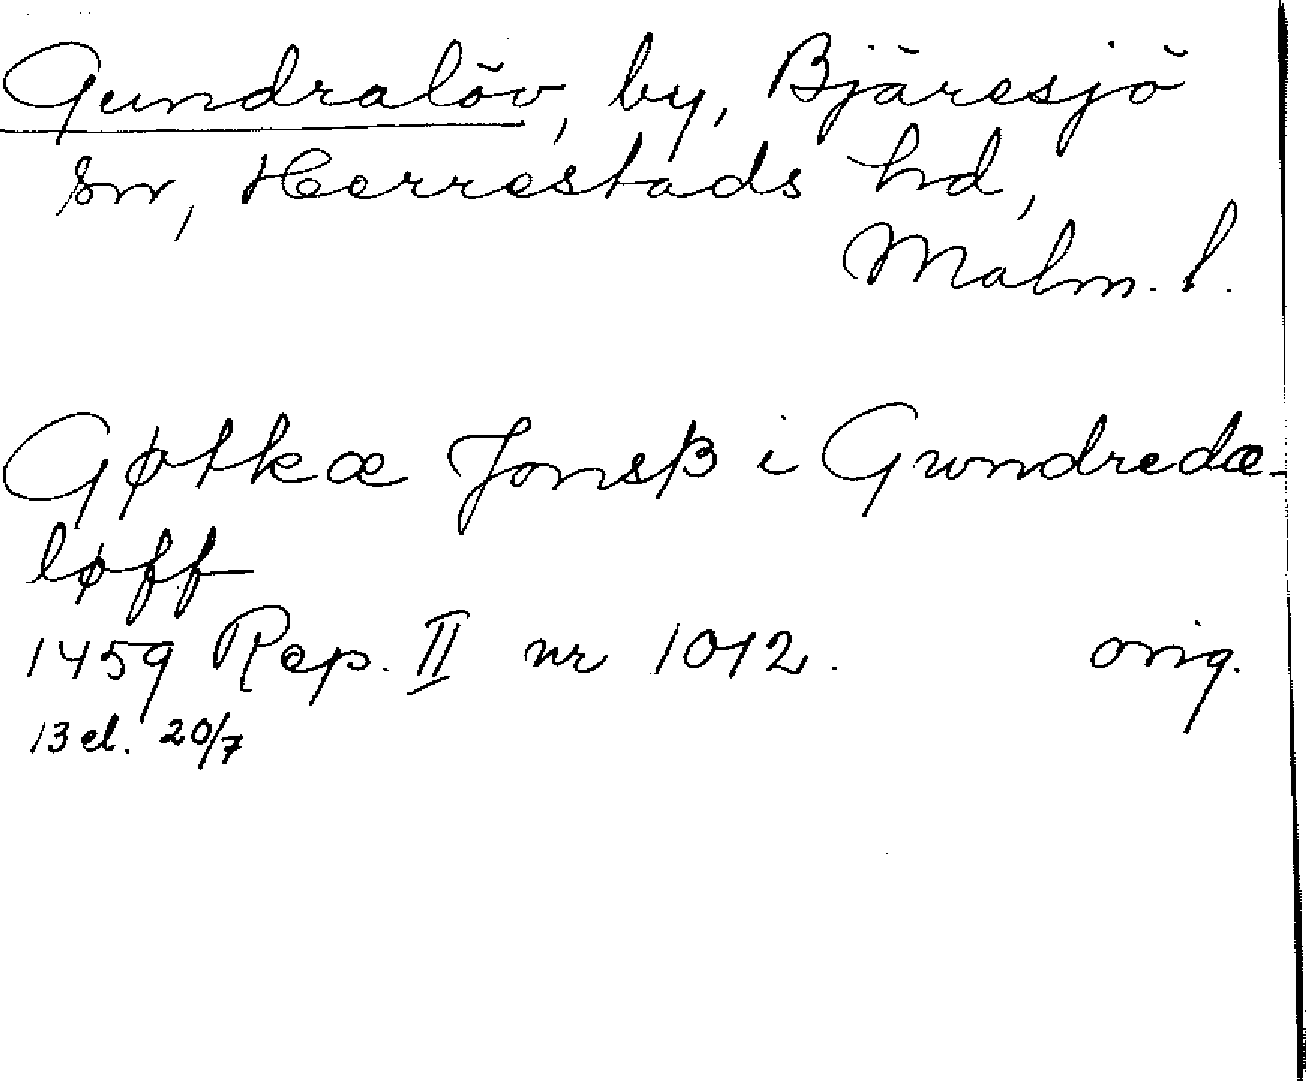 Gundralöv, by, Bjäresjö
sn, Herrestads hd,
Malm. l.
Gøtkæ Jonsß i Gwndredæ-
løff
1459 Rep. II nr 1012. orig.
13 el. 20/7